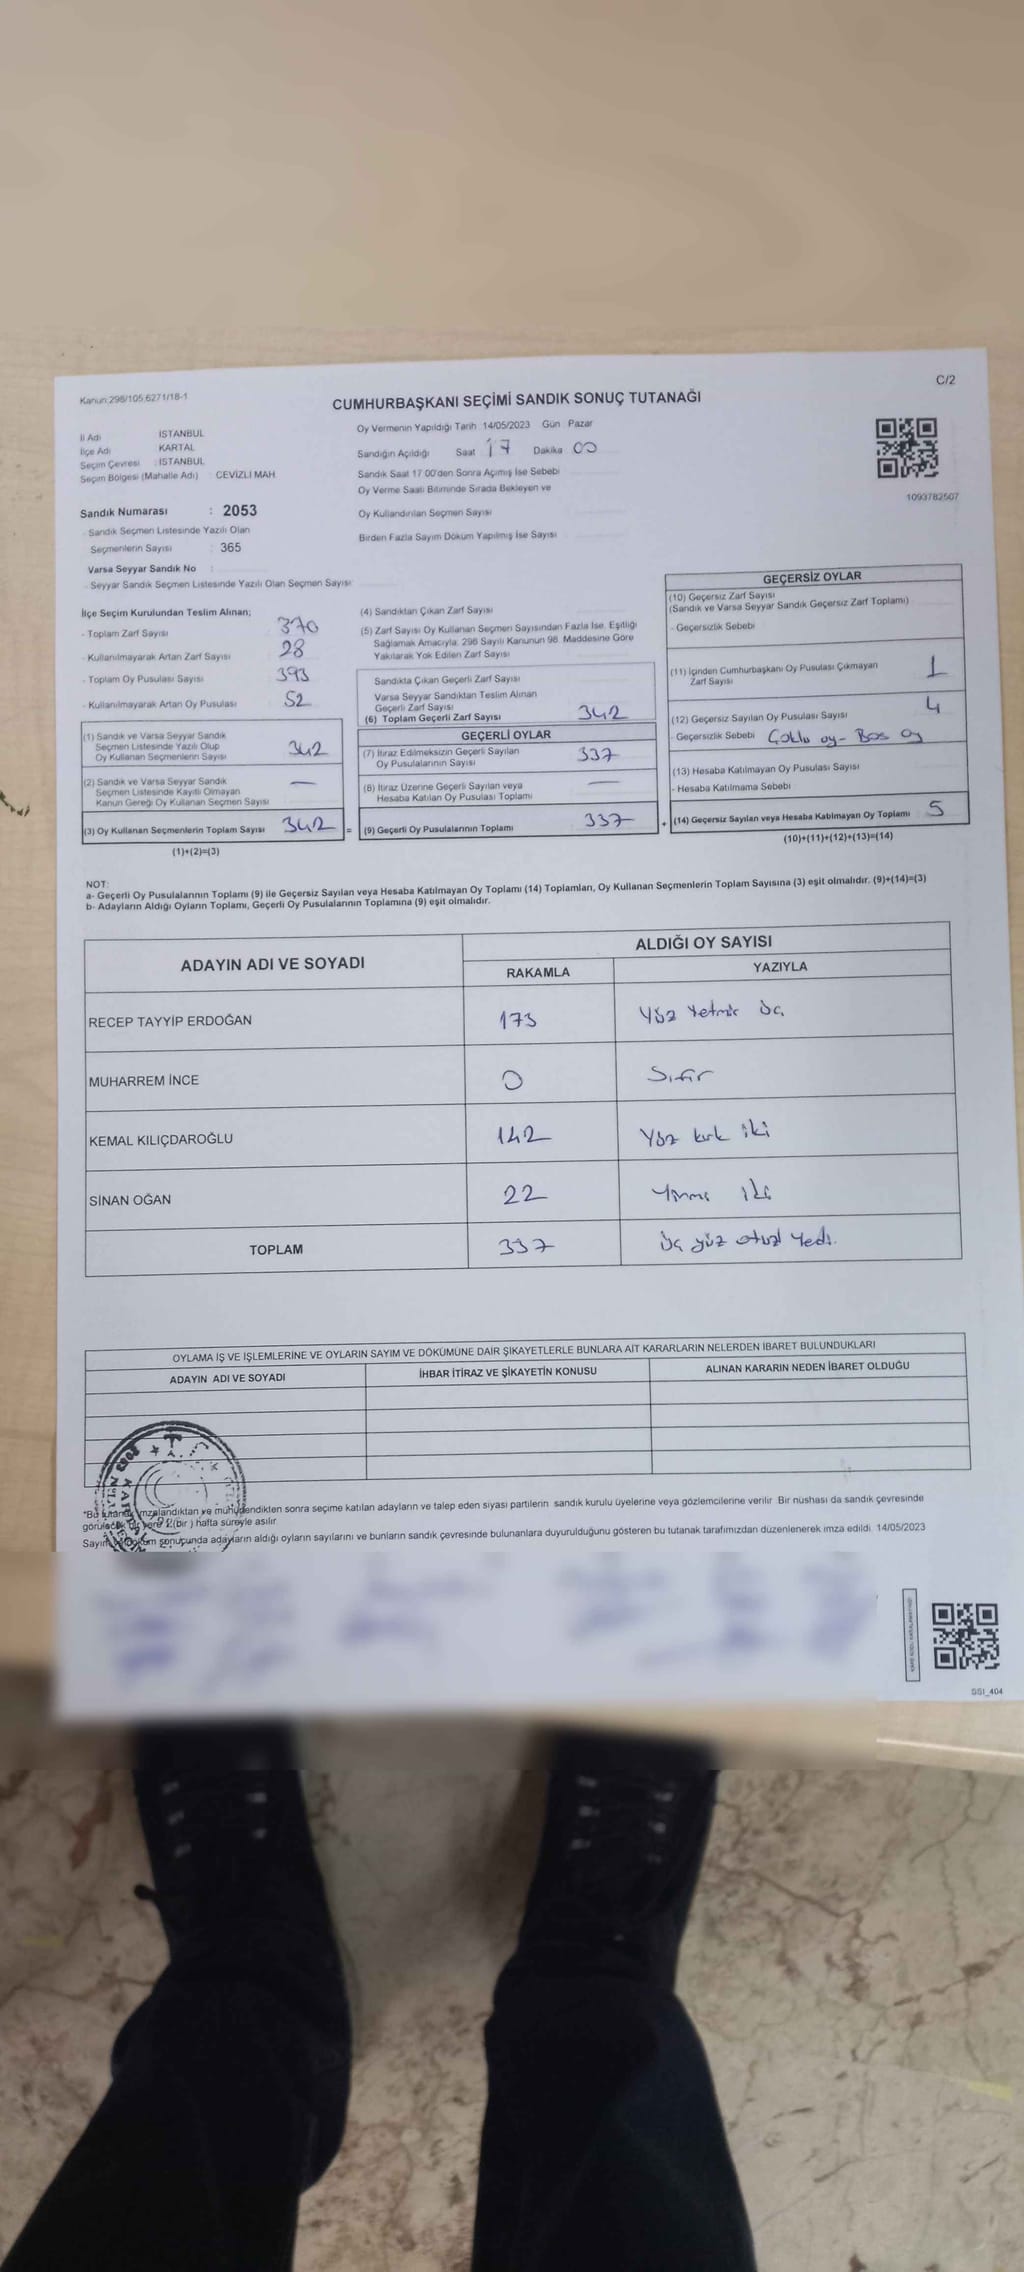 Kanun:298/105,6271/18-1
C/2
CUMHURBAŞKANI SEÇİMİ SANDIK SONUÇ TUTANAĞI
İl Adı İSTANBUL
İlçe Adı KARTAL
Seçim Çevresi : İSTANBUL
Seçim Bölgesi (Mahalle Adı) : CEVİZLİ MAH
Sandık Numarası : 2053
- Sandık Seçmen Listesinde Yazılı Olan
Seçmenlerin Sayısı : 365
Varsa Seyyar Sandık No :
- Seyyar Sandık Seçmen Listesinde Yazılı Olan Seçmen Sayısı
Oy Vermenin Yapıldığı Tarih 14/05/2023 Gün Pazar
Sandığın Açıldığı Saat 17 Dakika 00
Sandık Saat 17.00'den Sonra Açımış İse Sebebi
Oy Verme Saati Bitiminde Sırada Bekleyen ve
Oy Kullandırılan Seçmen Sayısı
Birden Fazla Sayım Döküm Yapılmış İse Sayısı
1093782507
İlçe Seçim Kurulundan Teslim Alınan;
- Toplam Zarf Sayısı 370
- Kullanılmayarak Artan Zarf Sayısı 28
- Toplam Oy Pusulası Sayısı 393
- Kullanılmayarak Artan Oy Pusulası 52
(1) Sandık ve Varsa Seyyar Sandık
Seçmen Listesinde Yazılı Olup
Oy Kullanan Seçmenlerin Sayısı 342
(2) Sandık ve Varsa Seyyar Sandık
Seçmen Listesinde Kayıtlı Olmayan
Kanun Gereği Oy Kullanan Seçmen Sayısı —
(3) Oy Kullanan Seçmenlerin Toplam Sayısı 342 =
(1)+(2)=(3)
(4) Sandıktan Çıkan Zarf Sayısı
(5) Zarf Sayısı Oy Kullanan Seçmen Sayısından Fazla İse, Eşitliği
Sağlamak Amacıyla, 298 Sayılı Kanunun 98. Maddesine Göre
Yakılarak Yok Edilen Zarf Sayısı
Sandıkta Çıkan Geçerli Zarf Sayısı
Varsa Seyyar Sandıktan Teslim Alınan
Geçerli Zarf Sayısı
(6) Toplam Geçerli Zarf Sayısı 342
GEÇERLİ OYLAR
(7) İtiraz Edilmeksizin Geçerli Sayılan
Oy Pusulalarının Sayısı 337
(8) İtiraz Üzerine Geçerli Sayılan veya
Hesaba Katılan Oy Pusulası Toplamı —
(9) Geçerli Oy Pusulalarının Toplamı 337 +
GEÇERSİZ OYLAR
(10) Geçersiz Zarf Sayısı
(Sandık ve Varsa Seyyar Sandık Geçersiz Zarf Toplamı)
- Geçersizlik Sebebi
(11) İçinden Cumhurbaşkanı Oy Pusulası Çıkmayan
Zarf Sayısı 1
(12) Geçersiz Sayılan Oy Pusulası Sayısı 4
- Geçersizlik Sebebi Çoklu oy - Boş oy
(13) Hesaba Katılmayan Oy Pusulası Sayısı
- Hesaba Katılmama Sebebi
(14) Geçersiz Sayılan veya Hesaba Katılmayan Oy Toplamı 5
(10)+(11)+(12)+(13)=(14)
NOT:
a- Geçerli Oy Pusulalarının Toplamı (9) ile Geçersiz Sayılan veya Hesaba Katılmayan Oy Toplamı (14) Toplamları, Oy Kullanan Seçmenlerin Toplam Sayısına (3) eşit olmalıdır. (9)+(14)=(3)
b- Adayların Aldığı Oyların Toplamı, Geçerli Oy Pusulalarının Toplamına (9) eşit olmalıdır.
ADAYIN ADI VE SOYADI
ALDIĞI OY SAYISI
RAKAMLA YAZIYLA
RECEP TAYYİP ERDOĞAN 173 Yüz Yetmiş üç
MUHARREM İNCE 0 Sıfır
KEMAL KILIÇDAROĞLU 142 Yüz kırk iki
SİNAN OĞAN 22 Yirmi iki
TOPLAM 337 Üç yüz otuz Yedi.
OYLAMA İŞ VE İŞLEMLERİNE VE OYLARIN SAYIM VE DÖKÜMÜNE DAİR ŞİKAYETLERLE BUNLARA AİT KARARLARIN NELERDEN İBARET BULUNDUKLARI
ADAYIN ADI VE SOYADI İHBAR İTİRAZ VE ŞİKAYETİN KONUSU ALINAN KARARIN NEDEN İBARET OLDUĞU
*Bu tutanak imzalandıktan ve mühürlendikten sonra seçime katılan adayların ve talep eden siyasi partilerin sandık kurulu üyelerine veya gözlemcilerine verilir. Bir nüshası da sandık çevresinde
görülecek bir yere (bir) hafta süreyle asılır.
Sayım ve döküm sonucunda adayların aldığı oyların sayılarını ve bunların sandık çevresinde bulunanlara duyurulduğunu gösteren bu tutanak tarafımızdan düzenlenerek imza edildi. 14/05/2023
SSI_404